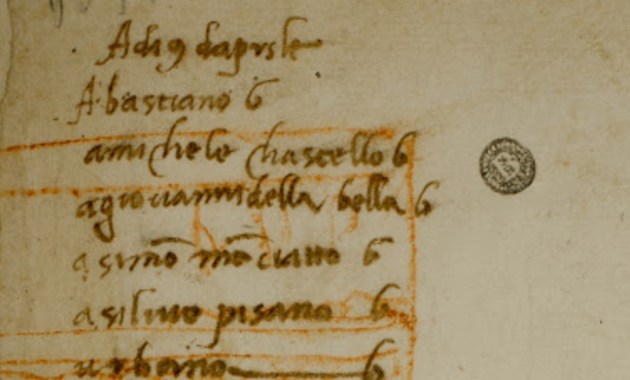 Adi 9 daprile
A bastiano 6
amichele chastello 6
agiovanni della bella 6
a simō mōciatto 6
a silvio pisano 6
urbano 6